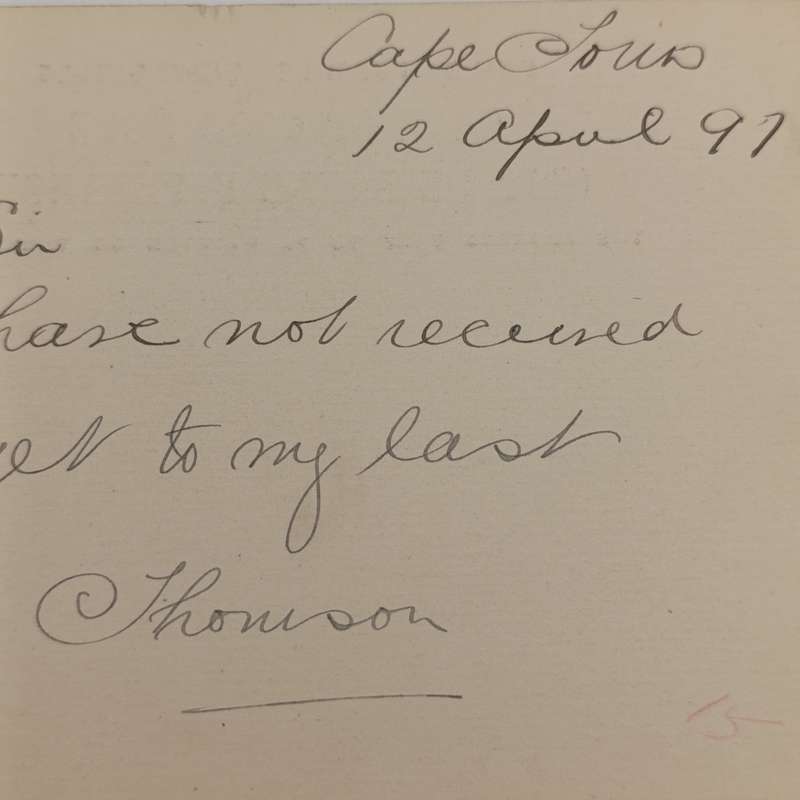 Cape Town
12 April 97
Sir
have not received
yet to my last
Thomson
15